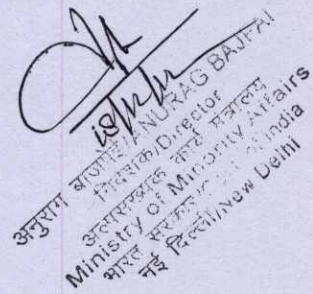 18/12/12
अनुराग बाजपेई/ANURAG BAJPAI
निदेशक/Director
अल्पसंख्यक कार्य मंत्रालय
Ministry of Minority Affairs
भारत सरकार of India
नई दिल्ली/New Delhi